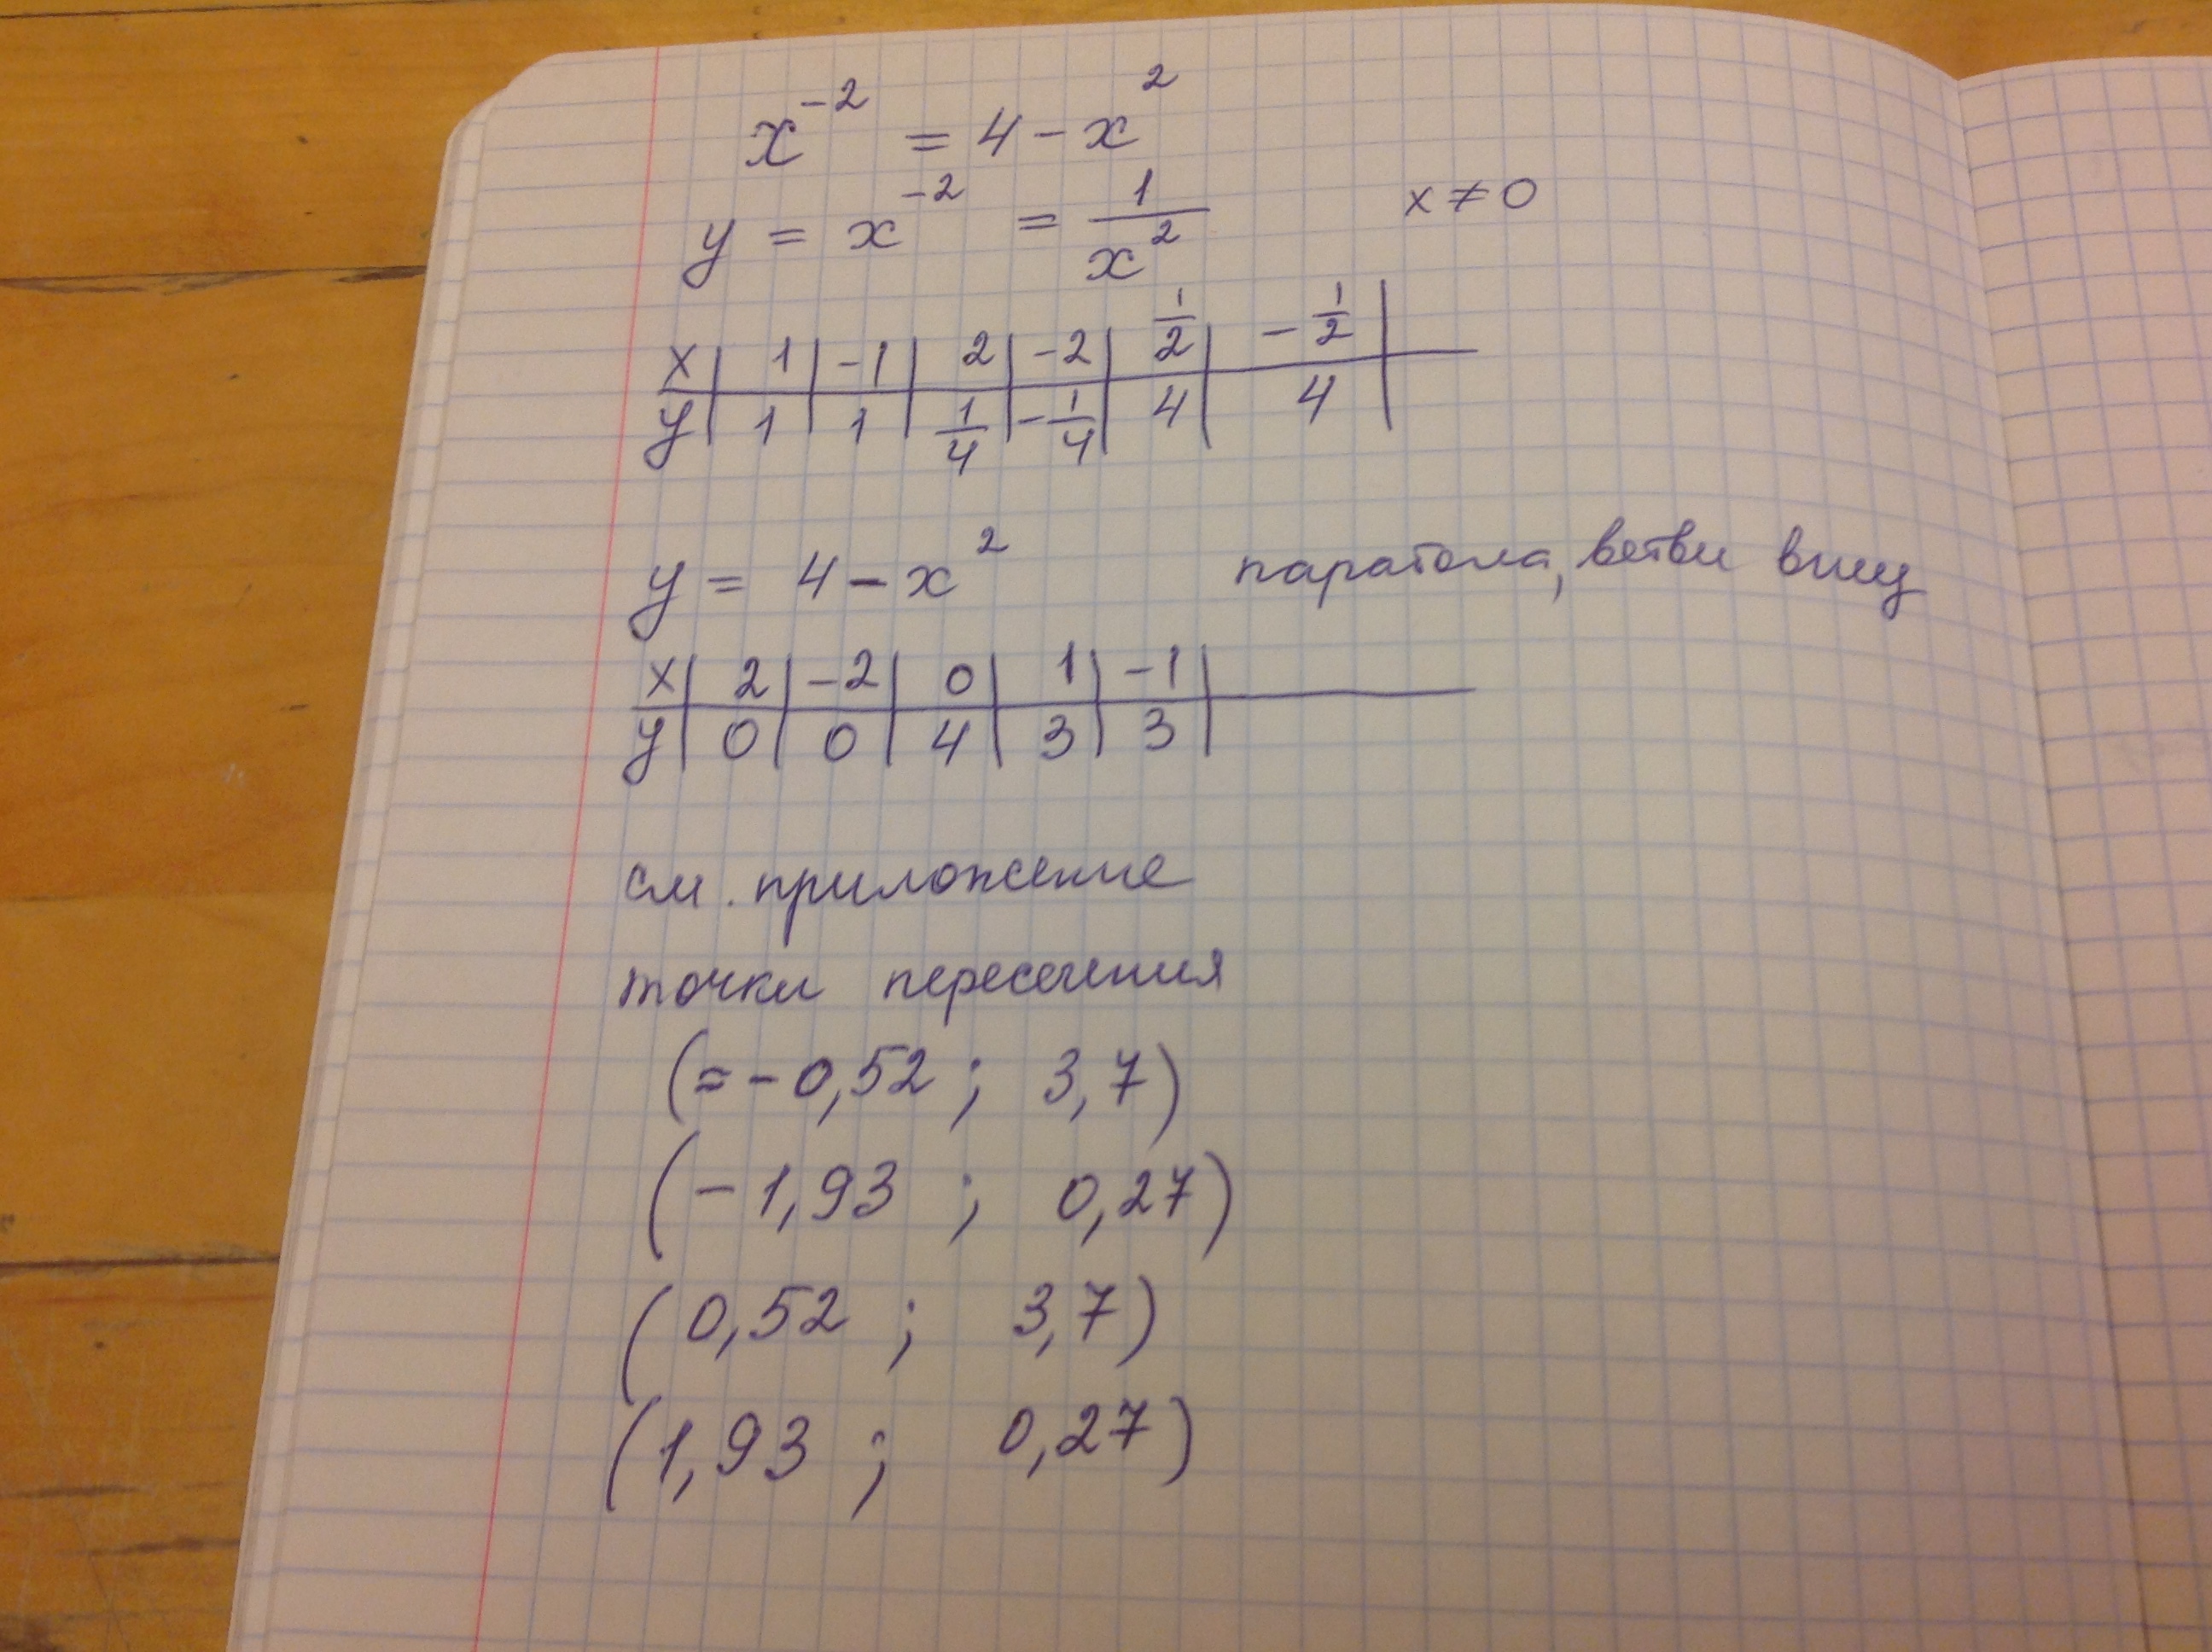 x⁻² = 4 - x²
y = x⁻² = 1/x² x ≠ 0
x | 1 | -1 | 2 | -2 | 1/2 | -1/2 |
y | 1 | 1 | 1/4 | -1/4 | 4 | 4 |
y = 4 - x² парабола, ветви вниз
x | 2 | -2 | 0 | 1 | -1 |
y | 0 | 0 | 4 | 3 | 3 |
см. приложение
точки пересечения
(≈ -0,52 ; 3,7)
(-1,93 ; 0,27)
(0,52 ; 3,7)
(1,93 ; 0,27)